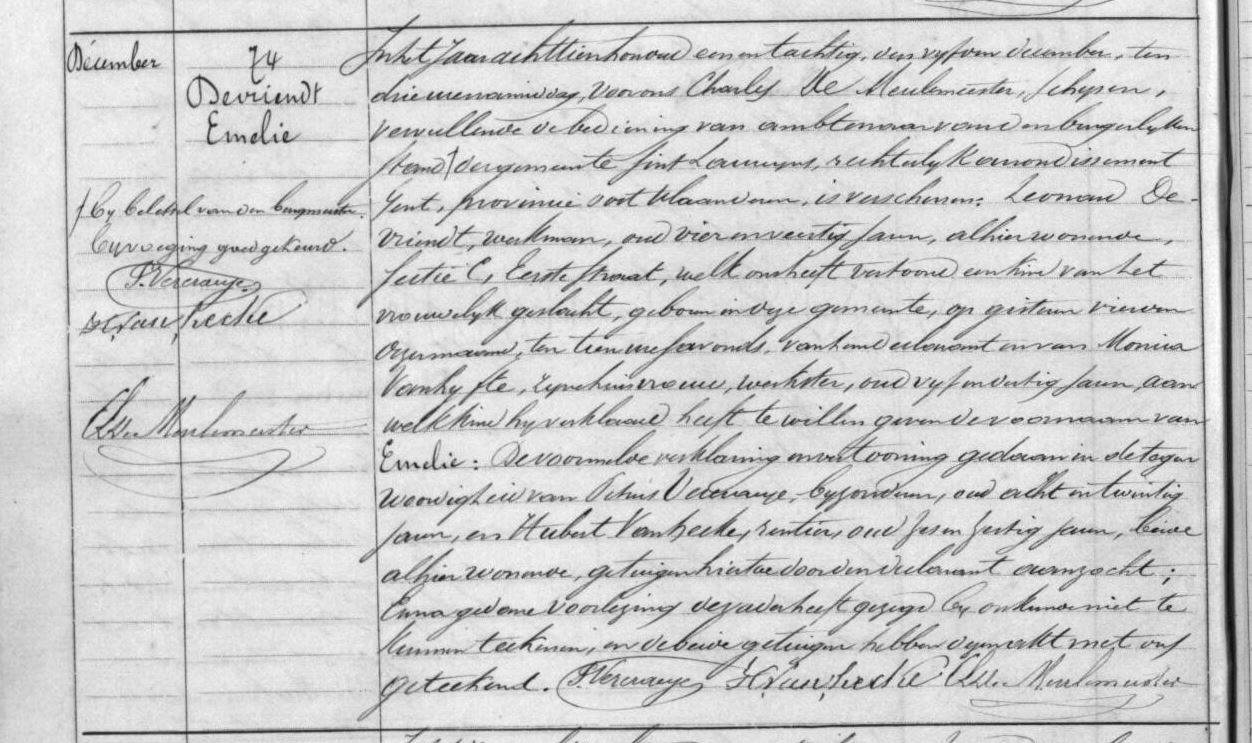 December
74
Devriendt
Emelie
† By beletsel van den burgmeester.
Byvoeging goedgekeurd.
P. Vercrauye
H. Van Hecke
Ch. De Meulemeester
In het jaar achttien honderd een en tachtig, den vyfden december, ten
drie uren namiddag, voor ons Charles De Meulemeester, schepen,
vervullende de bediening van ambtenaar van den burgerlyken
stand † der gemeente Sint Laureyns, rechterlyk arrondissement
Gent, provincie Oost Vlaanderen, is verschenen: Leonard De-
vriendt, werkman, oud vier en veertig jaren, alhier wonende,
sectie C, Eerste straat, welk ons heeft vertoond een kind van het
vrouwelyk geslacht, geboren in deze gemeente, op gisteren vierden
dezer maand, ten tien ure s'avonds, van hem declarant en van Monica
Vanhyfte, zyne huisvrouw, werkster, oud vyf en dertig jaren, aan
welk kind hy verklaard heeft te willen geven de voornaam van
Emelie: De voormelde verklaring en vertooning gedaan in de tegen
woordigheid van Petrus Vercrauye, byzonderen, oud acht en twintig
jaren, en Hubert Van Hecke, rentier, oud zes en zestig jaren, beide
alhier wonende, getuigen hiertoe door den declarant aanzocht;
En na gedane voorlezing de vader heeft gezegd by onkunde niet te
kunnen teekenen, en de beide getuigen hebben dezen akt met ons
geteekend. P. Vercrauye H. Van Hecke Ch. De Meulemeester